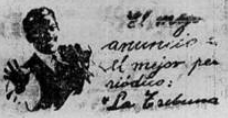 El mejor
anuncio =
El mejor pe
riódico:
"La Tribuna